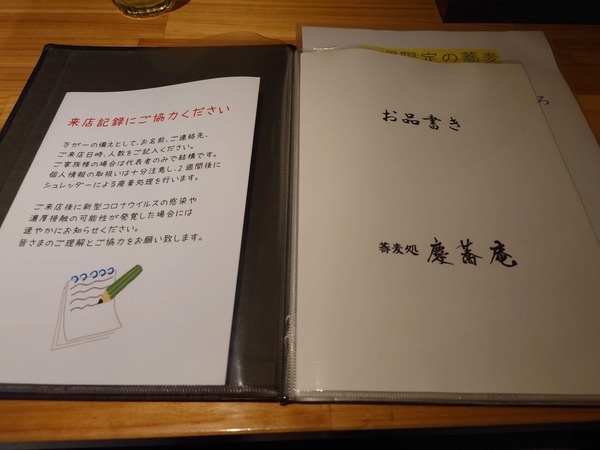 来店記録にご協力ください
万が一の備えとして、お名前、ご連絡先、
ご来店日時、人数をご記入ください。
ご家族様の場合は代表者のみで結構です。
個人情報の取扱いは十分注意し、2週間後に
シュレッダーによる廃棄処理を行います。
ご来店後に新型コロナウイルスの感染や
濃厚接触の可能性が発覚した場合には
速やかにお知らせください。
皆さまのご理解とご協力をお願い致します。
限定の蕎麦
ろ
お品書き
蕎麦処 慶蕎庵